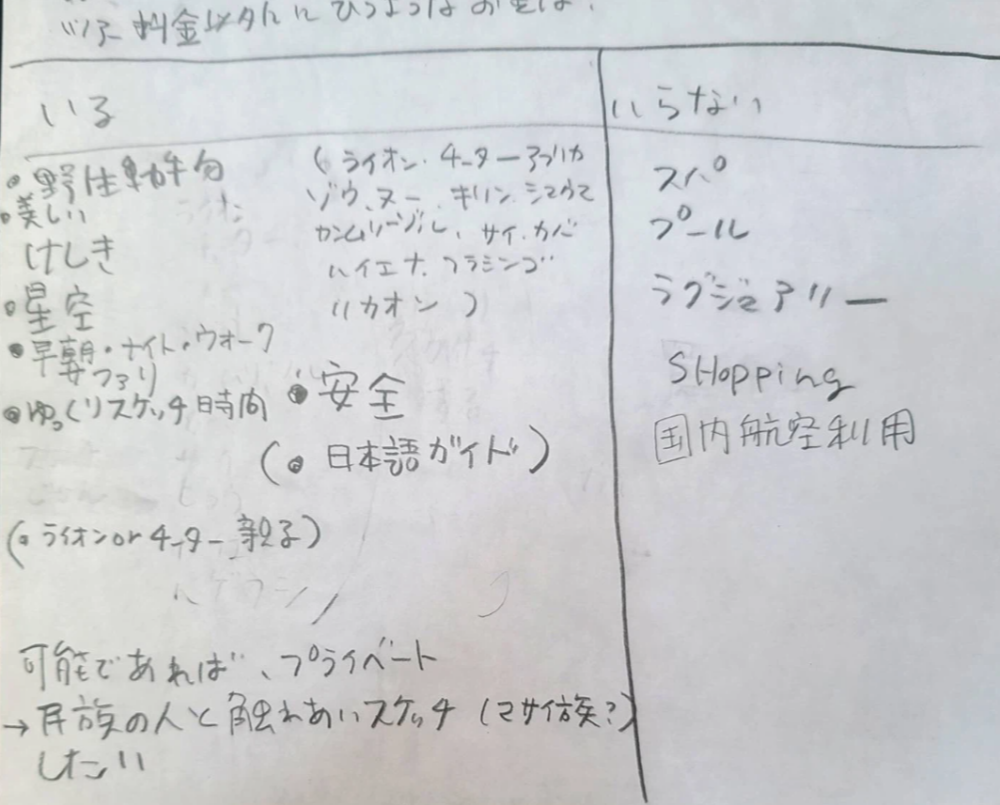 ツアー料金以外にひつようなお金は?
いる
・野生動物
・美しい
けしき
・星空
・早朝・ナイト・ウォーク
サファリ
・ゆっくりスケッチ時間
(ライオン・チーター アフリカ
ゾウ、ヌー、キリン、シマウマ
カンムリーヅル、サイ、カバ
ハイエナ、フラミンゴ
リカオン)
・安全
(・日本語ガイド)
(・ライオンorチーター親子)
可能であれば、プライベート
→民族の人と触れあいスケッチ(マサイ族?)
したい
いらない
スパ
プール
ラグジュアリー
SHopping
国内航空利用